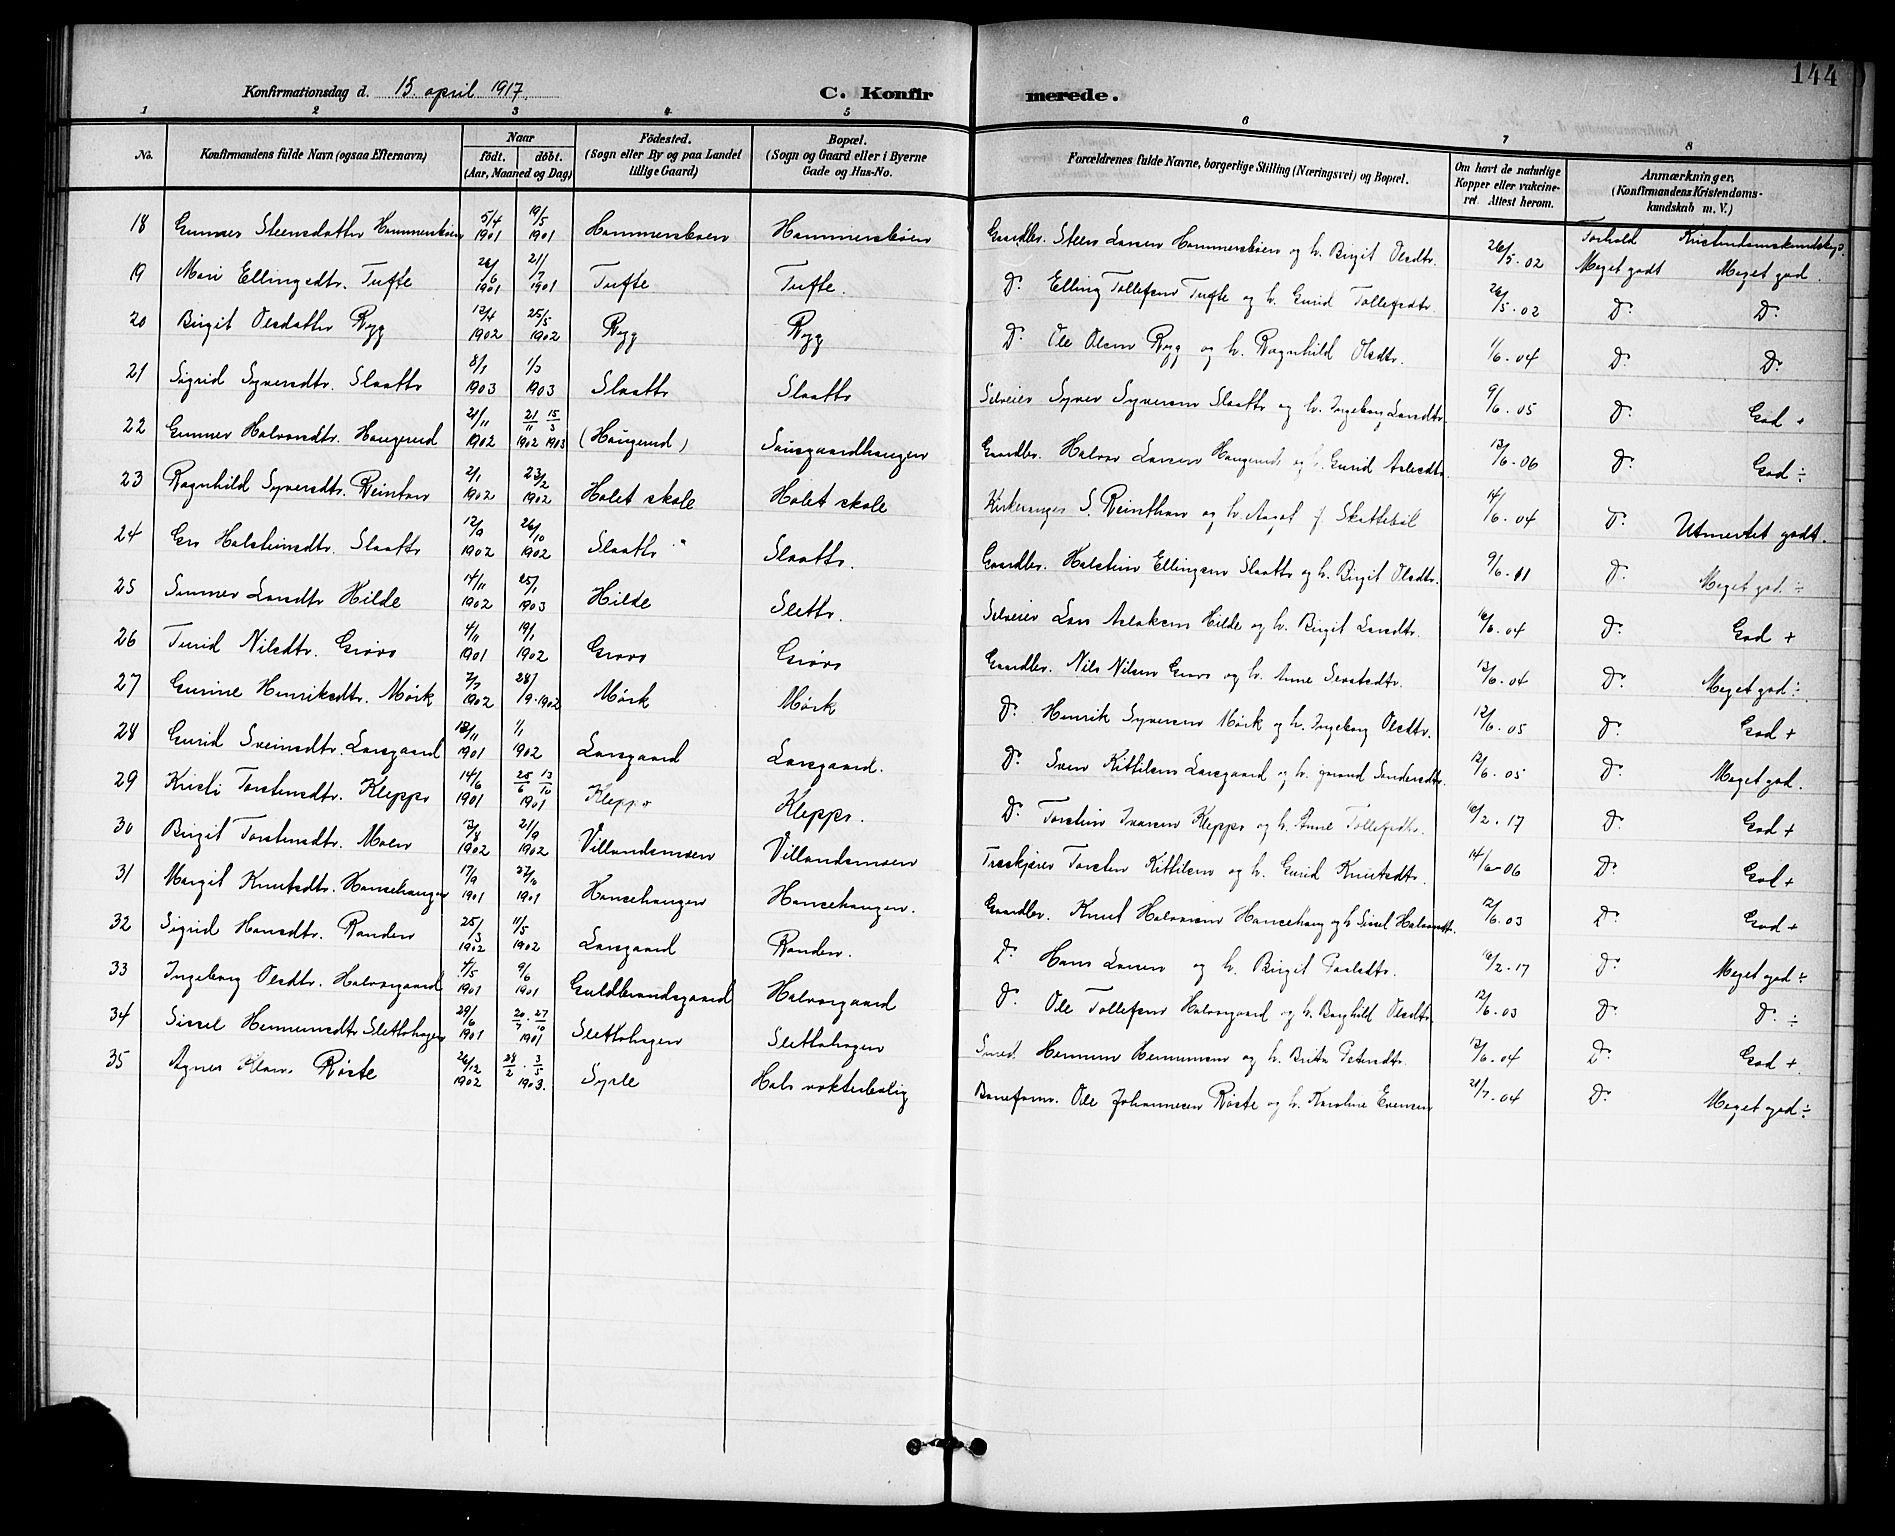 144
Konfirmationsdag d. 15. april 1917.
C. Konfirmerede.
1 2 3 4 5 6 7 8
No. Konfirmandens fulde Navn (ogsaa Efternavn) Naar født. døbt. (Aar, Maaned og Dag) Födested. (Sogn eller By og paa Landet tillige Gaard) Bopæl. (Sogn og Gaard eller i Byerne Gade og Hus-No. Forældrenes fulde Navne, borgerlige Stilling (Næringsvei) og Bopæl. Om havt de naturlige Kopper eller vakcineret. Attest herom. Anmærkninger. (Konfirmandens Kristendomskundskab m. V.)
Forhold Kristendomskundskap.
18 Gunner Steensdatter Hammersbøen 5/4 1901 19/5 1901 Hammersbøen Hammersbøen Gaardbr. Steen Larsen Hammersbøen og h. Birgit Olsdtr. 26/5.02 Meget godt Meget god.
19 Mari Ellingsdtr. Tufte 26/6 1901 21/7 1901 Tufte Tufte. Do Elling Tollefsen Tufte og h. Gurid Tollefsdtr. 26/5.02 Do Do
20 Birgit Olsdatter Ryg 13/4 1902 25/5 1902 Ryg Ryg Do Ole Olsen Ryg og h. Ragnhild Olsdtr. 1/6.04 Do Do
21 Sigrid Syversdtr. Slaatto 8/1 1903 1/3 1903 Slaatto Slaatto Selveier Syver Syversen Slaatto og h. Ingeborg Larsdtr. 9/6.05 Do God +
22 Gunner Halvorsdtr. Haugerud 21/11 1902 21/11 1902 15/3 1903 (Haugerud) Sausgaardhaugen Gaardbr. Halvor Larsen Haugerud og h. Gurid Aslesdtr. 13/6.06 Do God ÷
23 Ragnhild Syversdtr. Reinton 2/1 1902 23/2 1902 Holet skole Holet skole Kirkesanger S. Reinthon og h. Aagot f. Skattebøl 14/6.04 Do Utmerket godt.
24 Gro Holsteinsdtr. Slaatto 12/9 1902 26/10 1902 Slaatto Slaatto. Gaardbr. Holstein Ellingsen Slaatto og h. Birgit Olsdtr. 9/6.11 Do Meget god. ÷
25 Simmer Larsdtr Hilde 14/11 1902 25/1 1903 Hilde Sletto. Selveier Lars Aslaksen Hilde og h. Birgit Larsdtr. 16/6.04 Do God +
26 Turid Nilsdtr. Grøvo 4/11 1901 19/1 1902 Grøvo Grøvo Gaardbr. Nils Nilsen Grøvo og h. Anne Sevatsdtr. 13/6.04 Do Meget god ÷
27 Gurine Henriksdtr. Mørk 7/7 1902 28/9.1902 Mørk Mørk Do Henrik Syversen Mørk og h. Ingeborg Olsdtr. 12/6.05 Do God +
28 Gurid Sveinsdtr. Larsgaard 18/11 1901 1/1 1902 Larsgaard Larsgaard. Do Sven Kittilsen Larsgaard og h. Sandersdtr. 12/6.05 Do Meget god.
29 Kristi Torstensdtr. Kleppo 14/6 1901 25/6 13/10 1901 Kleppo Kleppo. Do Torstein Ivarsen Kleppo og h. Anne Tollefsdtr. 16/2.17 Do God +
30 Birgit Torstensdtr. Moen 13/8 1902 21/9 1902 Villandsmoen Villandsmoen Træskjærer Torsten Kittilsen og h. Gurid Knutsdtr. 14/6 06 Do God +
31 Margit Knutsdtr. Hansehaugen 17/9 1901 27/10 1901 Hansehaugen Hansehaugen. Gaardbr. Knut Halvorsen Hansehaug og h Sissel Halvorsdtr. 12/6.03 Do God +
32 Sigrid Hansdtr. Randen 25/3 1902 11/5 1902 Larsgaard Randen. Do Hans Larsen og h. Birgit Paalsdtr. 16/2.17 Do Meget god ÷
33 Ingeborg Olsdtr. Halvorgaard 4/5 1901 9/6 1901 Guldbrandsgaard Halvorgaard Do Ole Tollefsen Halvorgaard og h. Borghild Olsdtr. 12/6.03 Do Do ÷
34 Sissel Hermunsdtr. Slettohagen 29/6 1901 20/7. 27/10 1901 Slettohagen Slettohagen Smed. Hermun Hermunsen og h. Britta Petersdtr. 13/6.04 Do God +.
35 Agnes Røste 26/12 1902 28/2. 3/5 1903. Syrle Hols vokterbolig Baneform. Ole Johannesen Røste og h. Karoline Evensen 21/7.04 Do Meget god ÷